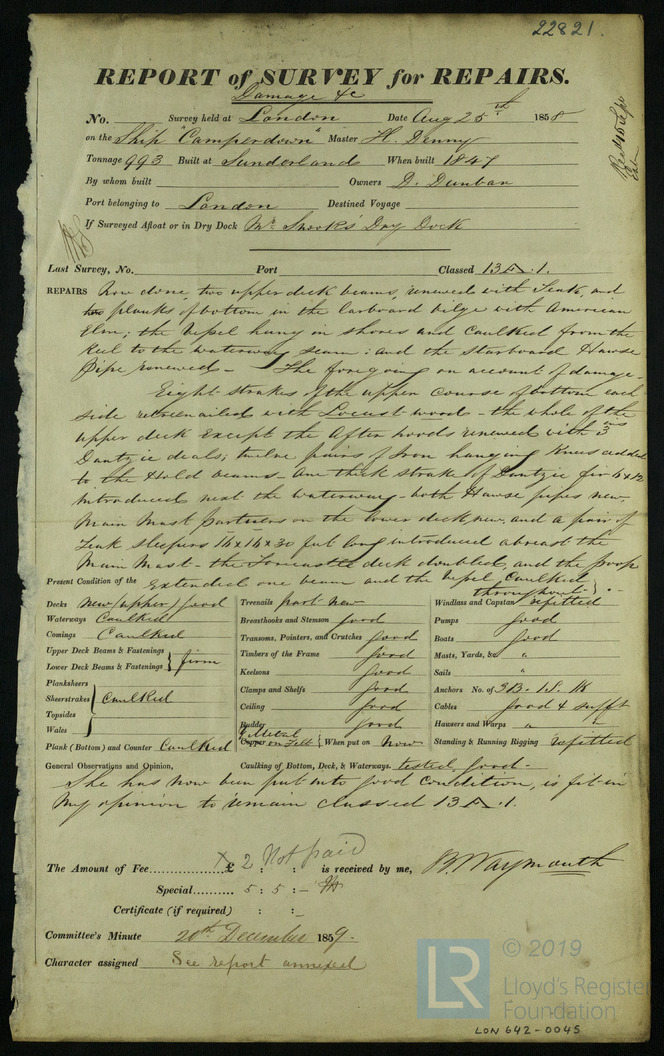 22821.
REPORT of SURVEY for REPAIRS.
Damage &c
No. Survey held at London Date Aug 25th 1858
on the Ship "Camperdown" Master H. Denny
Tonnage 993 Built at Sunderland When built 1847
By whom built Owners D. Dunbar
Port belonging to London Destined Voyage
If Surveyed Afloat or in Dry Dock Mr Snook's Dry Dock
Last Survey, No. Port Classed 13 A. 1.
REPAIRS Now done, two upper deck beams, renewed with Teak, and
two planks of bottom in the larboard bilge with American
Elm; the Vessel hung in shores and caulked from the
Keel to the waterway seam: and the starboard Hawse
Pipe renewed - The foregoing on account of damage -
Eight strakes of the upper course of bottom each
side retreenailed with Locust wood - the whole of the
upper deck except the after hoods renewed with 3 ins
Dantzic deals; twelve pairs of Iron hanging Knees added
to the Hold beams - One thick strake of Dantzic fir 4 x 12
introduced next the waterway - both Hawse pipes new,
Main Mast partners on the lower deck new, and a pair of
Teak sleepers 14 x 14 x 30 feet long introduced abreast the
Main Mast - the Forecastle deck doubled, and the poop
Extended one beam and the vessel caulked
throughout -
Present Condition of the
Decks New (upper) good Treenails part new Windlass and Capstan refitted
Waterways Caulked Breasthooks and Stemson good Pumps good
Comings Caulked Transoms, Pointers, and Crutches good Boats good
Upper Deck Beams & Fastenings Timbers of the Frame good Masts, Yards, &c "
Lower Deck Beams & Fastenings } firm Keelsons good Sails "
Planksheers Clamps and Shelfs good Anchors No. of 3B. 1S. 1K
Sheerstrakes } Caulked Ceiling good Cables good & sufft
Topsides Rudder good Hawsers and Warps " "
Wales Y. Metal
Plank (Bottom) and Counter Caulked Copper on Felt { When put on Now Standing & Running Rigging refitted
General Observations and Opinion, Caulking of Bottom, Deck, & Waterways. tested good -
She has now been put into good condition, is fit in
my opinion to remain classed 13 A. 1.
The Amount of Fee £ 2 : : Not paid is received by me, B. Waymouth
Special 5 : 5 : -
Certificate (if required) : : -
Committee's Minute 20th December 1859.
Character assigned See report annexed
© 2019
LR
Lloyd's Register
Foundation
LON 642-0045